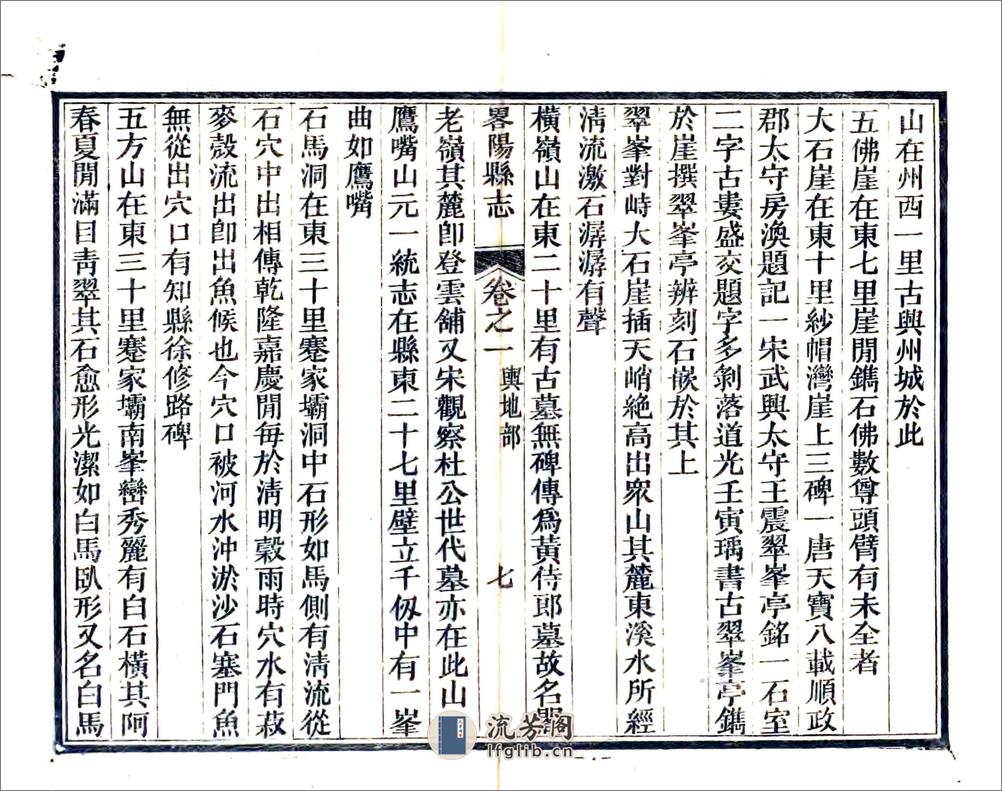 山在州西一里古興州城於此
五佛崖在東七里崖閒鐫石佛數尊頭臂有未全者
大石崖在東十里紗帽灣崖上三碑一唐天寶八載順政
郡太守房渙題記一宋武興太守王震翠峯亭銘一石室
二字古婁盛交題字多剝落道光壬寅瑀書古翠峯亭鐫
於崖撰翠峯亭辨刻石嵌於其上
翠峯對峙大石崖插天峭絶高出衆山其麓東溪水所經
清流激石潺潺有聲
橫嶺山在東二十里有古墓無碑傳爲黃侍郎墓故名
畧陽縣志 卷之一 輿地部 七
老嶺其麓卽登雲舖又宋觀察杜公世代墓亦在此山
鷹嘴山元一統志在縣東二十七里壁立千仭中有一峯
曲如鷹嘴
石馬洞在東三十里蹇家壩洞中石形如馬側有清流從
石穴中出相傳乾隆嘉慶閒每於清明穀雨時穴水有菽
麥殼流出卽出魚候也今穴口被河水沖淤沙石塞門魚
無從出穴口有知縣徐修路碑
五方山在東三十里蹇家壩南峯巒秀麗有白石橫其阿
春夏閒滿目靑翠其石愈形光潔如白馬臥形又名白馬
流芳閣
lfglib.cn